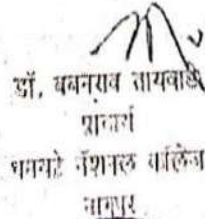 डॉ. बबनराव तायवाडे
प्राचार्य
धनवटे नॅशनल कॉलेज
नागपूर